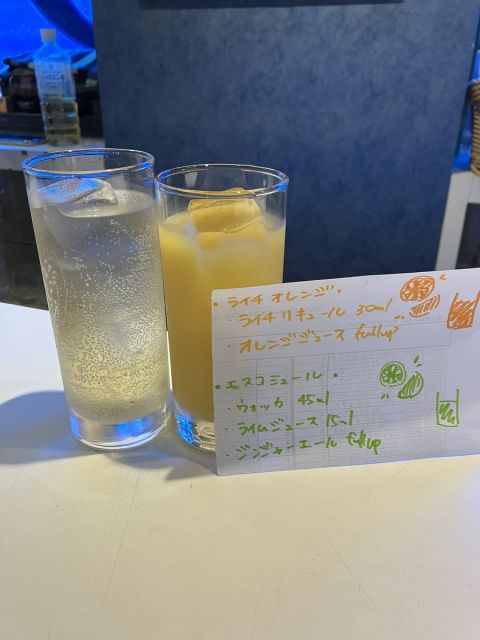 • ライチオレンジ •
・ライチリキュール 30ml
・オレンジジュース fullup
• モスコミュール •
・ウォッカ 45ml
・ライムジュース 15ml
・ジンジャーエール fullup